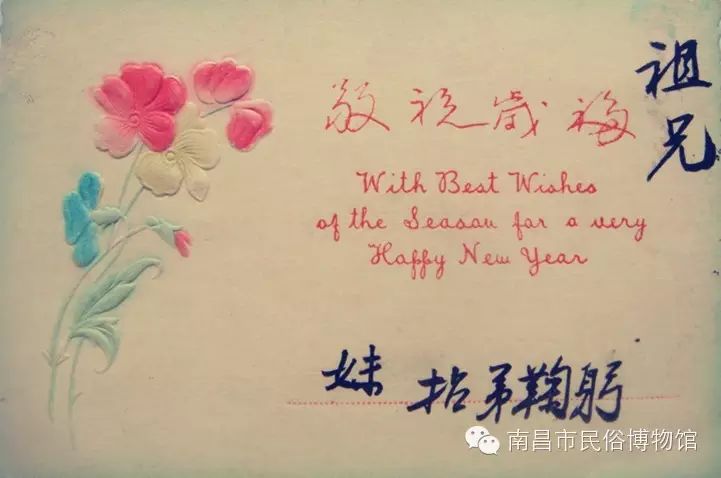 祖兄
敬祝歲福
With Best Wishes
of the Seasau for a very
Happy New Year
妹 拈弟鞠躬
南昌市民俗博物馆